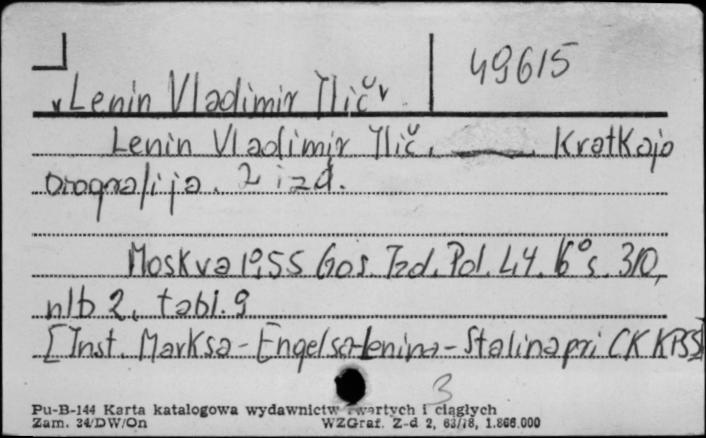 49615
Lenin Vladimir Ilič
Lenin Vladimir Ilič. Kratkaja
biografija. 2 izd.
Moskva 1955 Gos. Izd. Pol. Lit. 16° s. 310,
nlb 2, tabl. 9
[Inst. Marksa-Engelsa-Lenina-Stalina pri CK KPSS]
3
Pu-B-144 Karta katalogowa wydawnictw zwartych i ciągłych
Zam. 34/DW/On WZGraf. Z-d 2, 63/78, 1.866.000